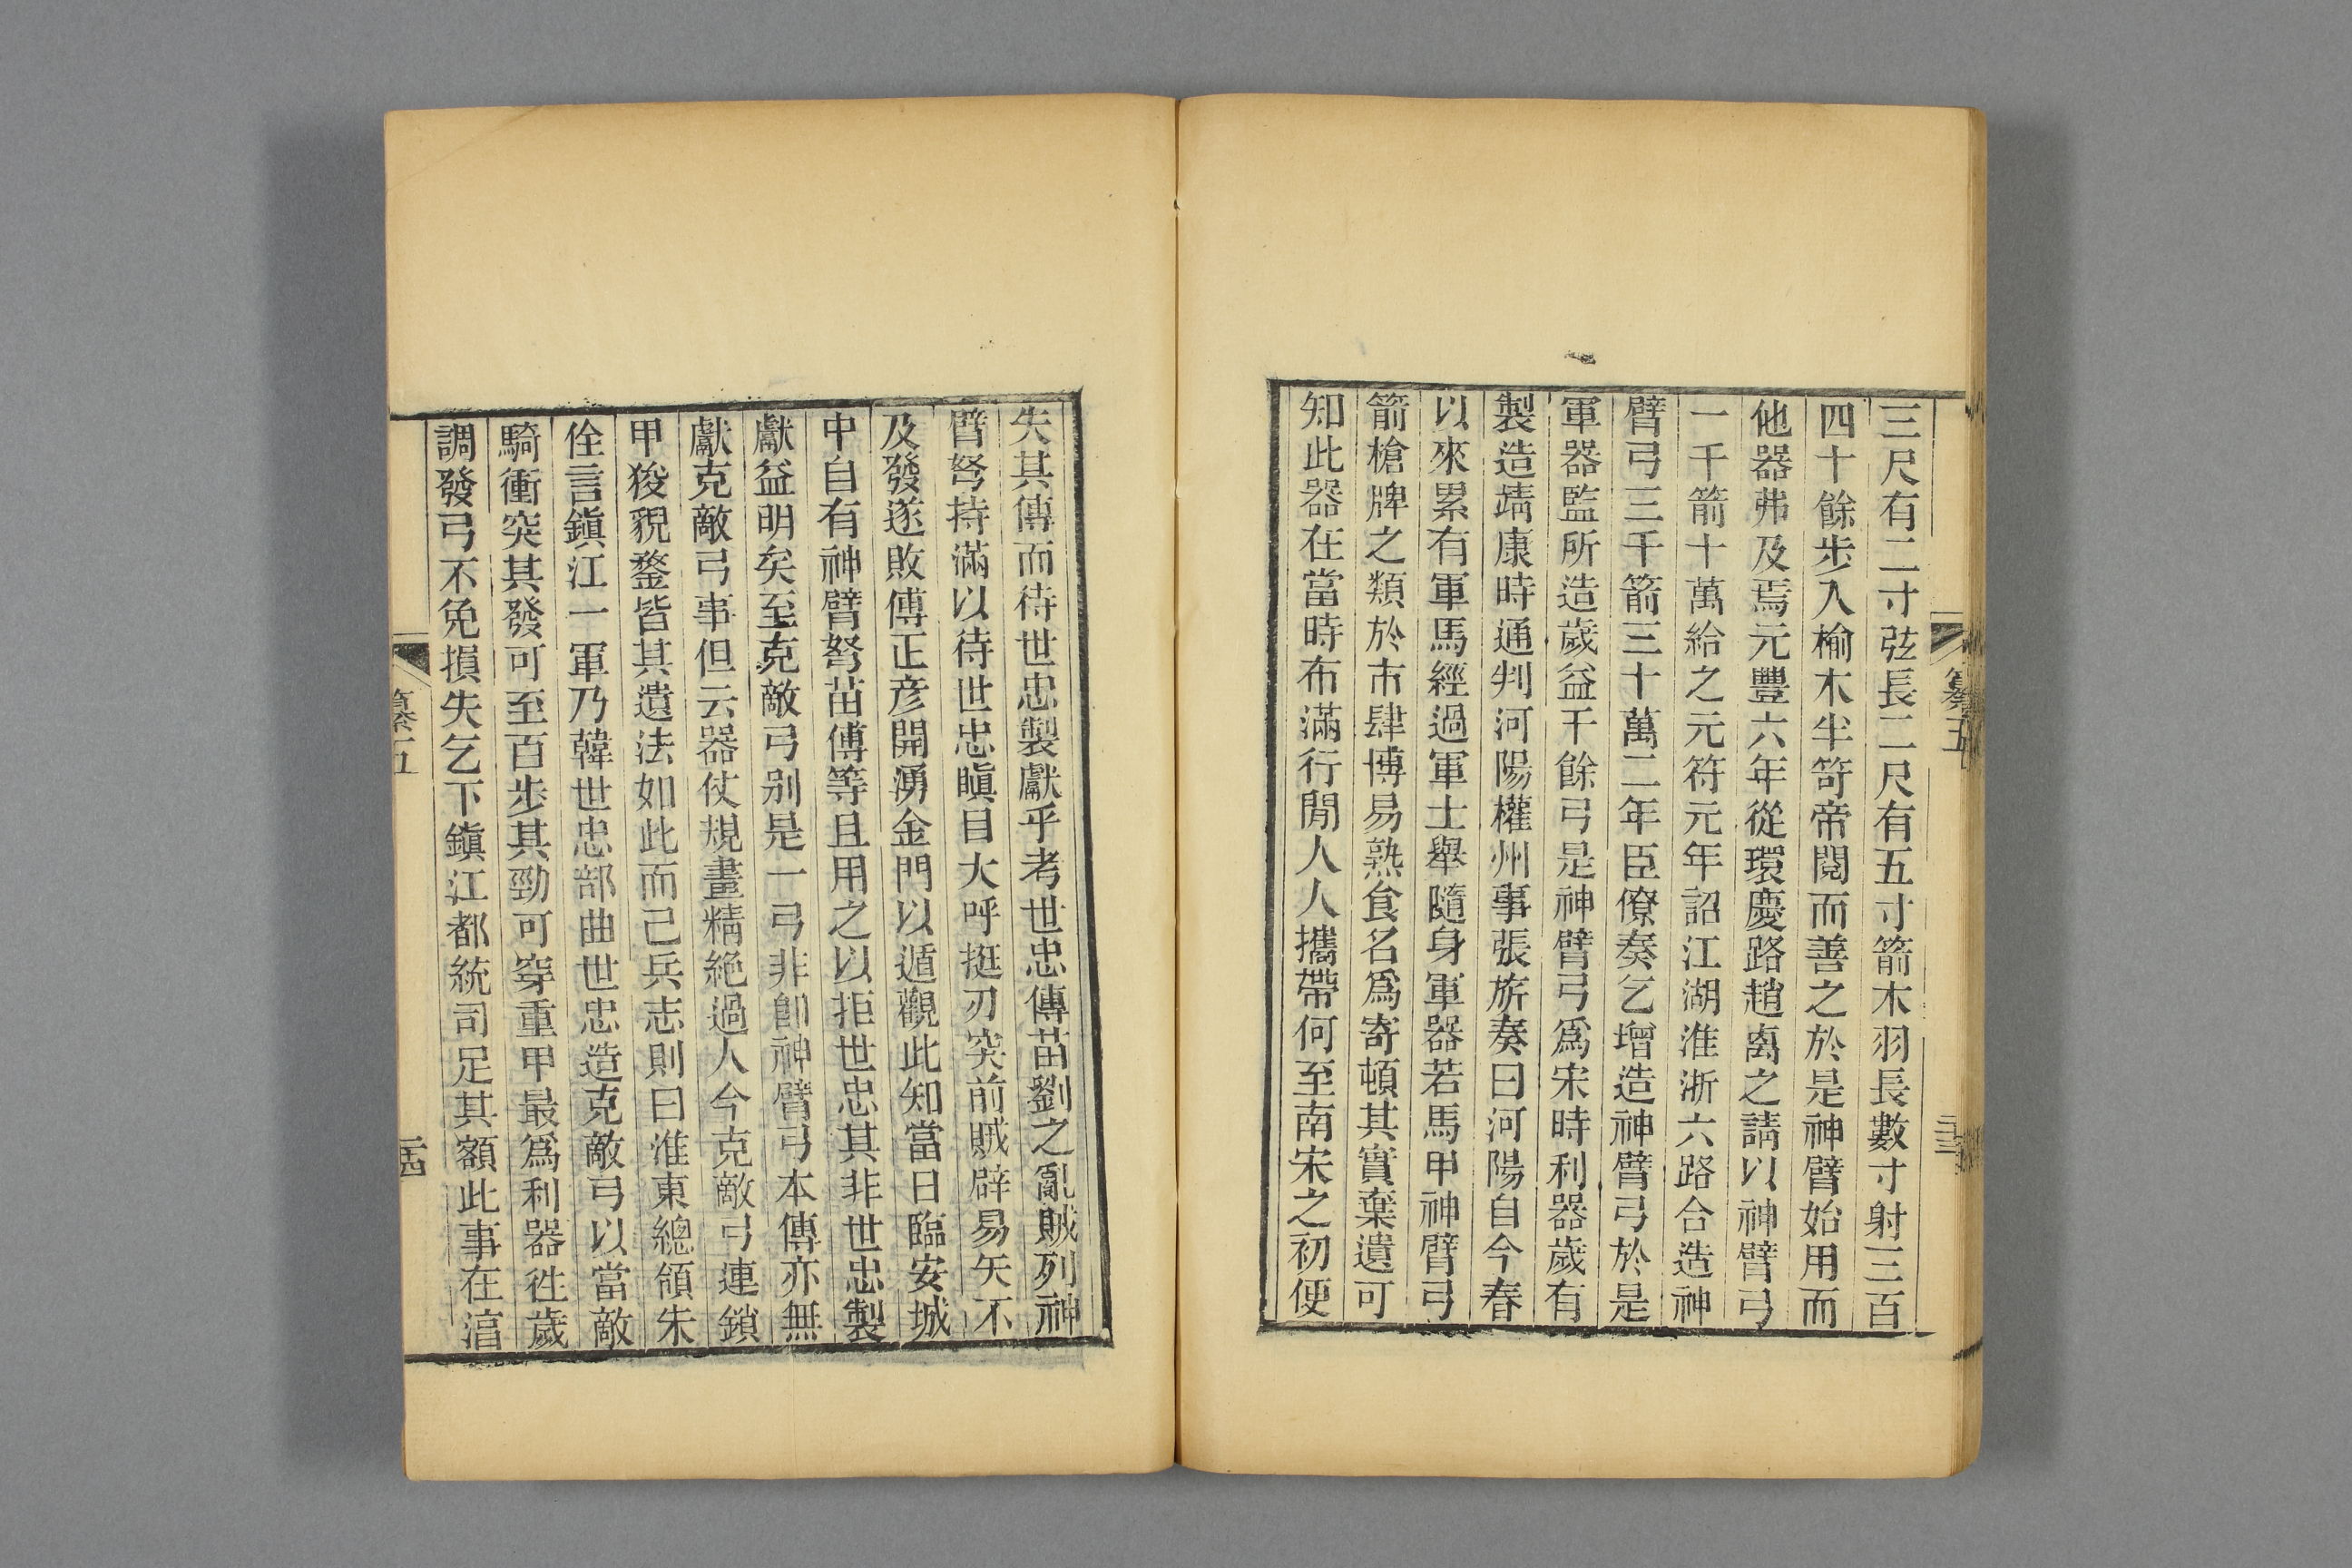 三尺有二寸弦長二尺有五寸箭木羽長數寸射三百
四十餘步入榆木半笴帝閱而善之於是神臂始用而
他器弗及焉元豐六年從環慶路趙卨之請以神臂弓
一千箭十萬給之元符元年詔江湖淮浙六路合造神
臂弓三千箭三十萬二年臣僚奏乞增造神臂弓於是
軍器監所造歲益千餘弓是神臂弓爲宋時利器歲有
製造靖康時通判河陽權州事張旂奏曰河陽自今春
以來累有軍馬經過軍士舉隨身軍器若馬甲神臂弓
箭槍牌之類於市肆博易熟食名爲寄頓其實棄遺可
知此器在當時布滿行閒人人攜帶何至南宋之初便
纂五
二十三
失其傳而待世忠製獻乎考世忠傳苗劉之亂賊列神
臂弩持滿以待世忠瞋目大呼挺刃突前賊辟易矢不
及發遂敗傅正彥開湧金門以遁觀此知當日臨安城
中自有神臂弩苗傅等且用之以拒世忠其非世忠製
獻益明矣至克敵弓别是一弓非卽神臂弓本傳亦無
獻克敵弓事但云器仗規畫精絶過人今克敵弓連鎖
甲狻猊鍪皆其遺法如此而已兵志則曰淮東總領朱
佺言鎭江一軍乃韓世忠部曲世忠造克敵弓以當敵
騎衝突其發可至百步其勁可穿重甲最爲利器徃歲
調發弓不免損失乞下鎭江都統司足其額此事在湻
纂五
二十四